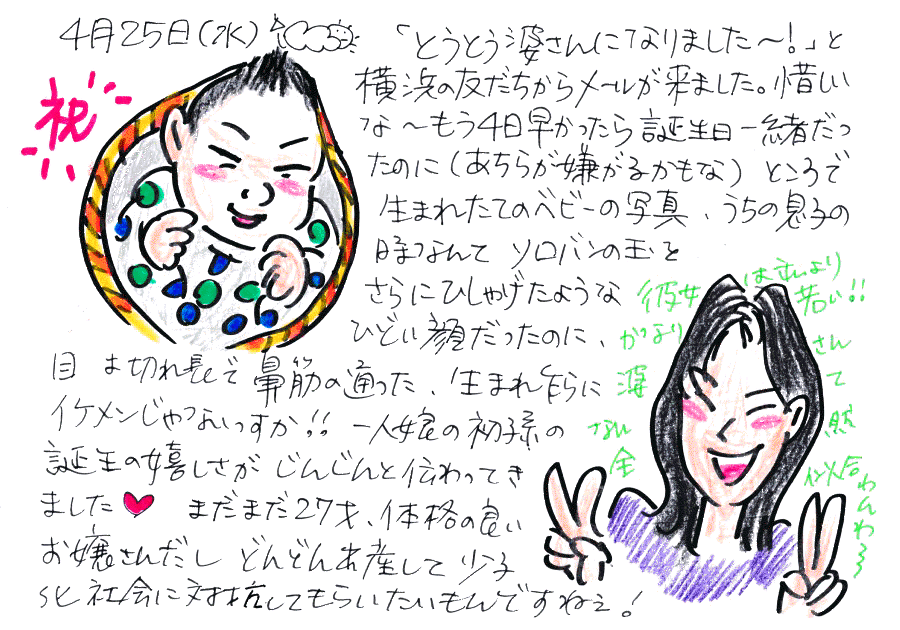 4月25日(水)
祝
「とうとう婆さんになりました〜!」と
横浜の友だちからメールが来ました。惜しい
な〜もう4日早かったら誕生日一緒だっ
たのに(あちらが嫌がるかもな)ところで
生まれたてのベビーの写真、うちの息子の
時なんて ソロバンの玉を
さらにひしゃげたような
ひどい顔だったのに、
目は切れ長で鼻筋の通った、生まれ乍らに
イケメンじゃないっすか!!一人娘の初孫の
誕生の嬉しさが じんじんと伝わってき
ました♥ まだまだ27才、体格の良い
お嬢さんだし どんどん出産して 少子
化社会に対抗してもらいたいもんですねぇ!
彼女はさいより
若い!!
かつより
婆さん
なんて
全然
似合わんわ〜